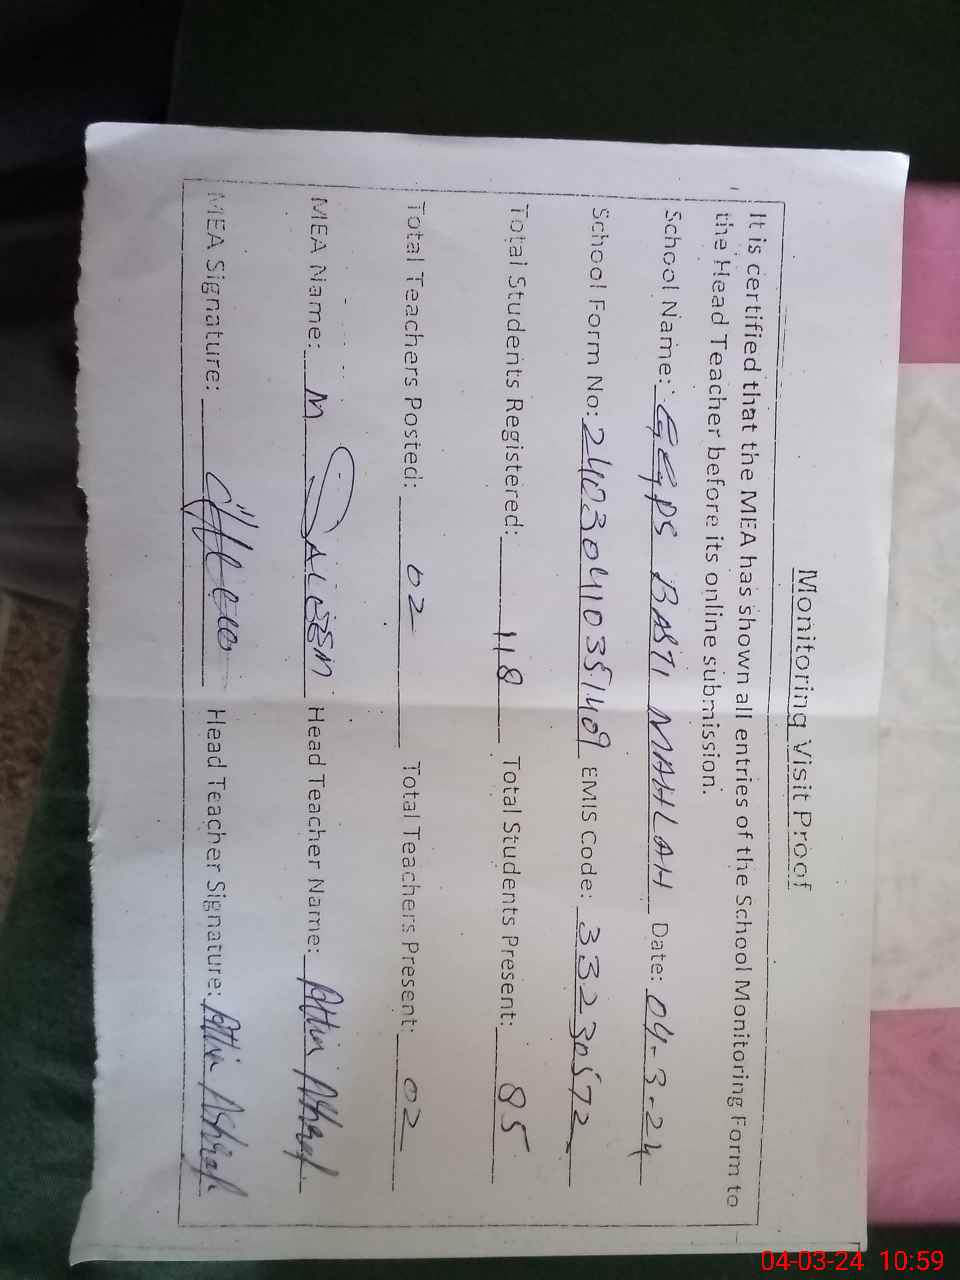 Monitoring Visit Proof
It is certified that the MEA has shown all entries of the School Monitoring Form to
the Head Teacher before its online submission.
School Name: GGPS BASTI MAHLAH Date: 04-3-24
School Form No: 2403041035409 EMIS Code: 33230572
Total Students Registered: 118 Total Students Present: 85
Total Teachers Posted: 02 Total Teachers Present: 02
MEA Name: M SALEEM Head Teacher Name: Attia Ashraf
MEA Signature: Head Teacher Signature: Attia Ashraf
04-03-24 10:59